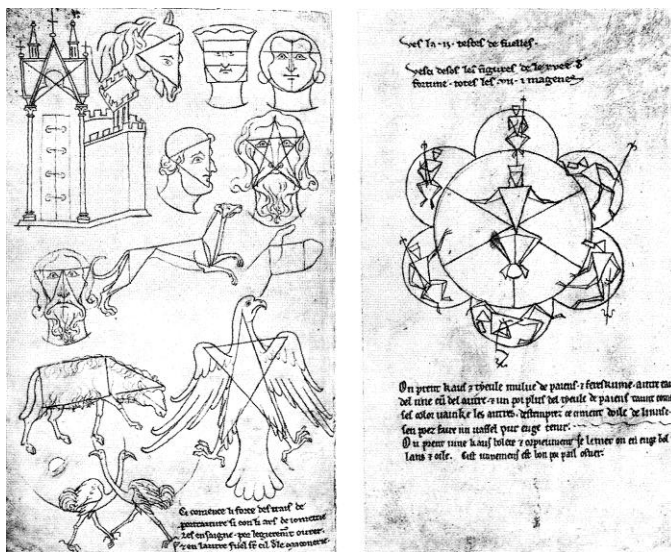 Ci comence li force des trais de
portraiture si con li ars de iometrie
les ensaigne · por legierement ovrer ·
& en lautre fuel st cil dle maconerie ·
ves la · ii · testes de fuelles ·
vesci desos les figures de le ruee d
fortune · totes les · vii · imagenes
On prent kaus & tyeule mulue de paiens · &
del une cū del autre · & un poi plus del tyeule de paiens tant
ses color vainke les autres · destemprez ce ciment doile de linuise
sen poez faire un vassel pur euge tenir ·
On prent vive kaus bolete & orpieument se le met on en euge bol
lans & oile · Cest unemens est bon por pail oster ·